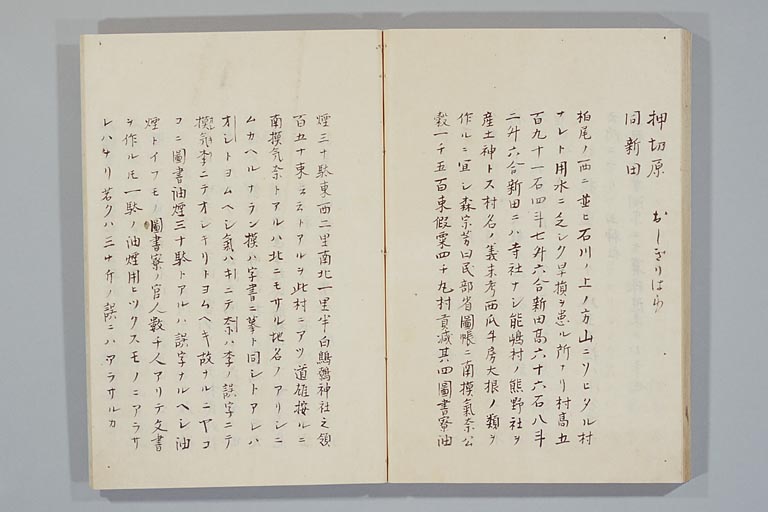 押切原 おしぎりはら
同新田
柏尾ノ西ニ並ヒ石川ノ上ノ方山ニソヒタル村
ナレト用水ニ乏シク旱損ヲ患ル所ナリ村高五
百九十一石四斗七升六合新田高六十六石八斗
二升六合新田ニハ寺社ナシ能嶋村ノ熊野社ヲ
産土神トス村名ノ義未考西瓜牛房大根ノ類ヲ
作ルニ宜シ森宗芳曰民部省圖帳ニ南摸氣奈公
穀一千五百束假粟四千九村貢減其四圖書寮油
煙三十駄東西二里南北一里半白鷴鷀神社之領
百五十束云云トアルヲ此村ニアツ道雄按ルニ
南摸气奈トアルハ北ニモサル地名ノアリシニ
ムカヘルナラン摸ハ字書ニ摹ト同シトアレハ
オシトヨムヘシ氣ハキニテ奈ハ李ノ誤字ニテ
摸氣李ニテオシキリトヨムヘキ故ナルニヤコ
コニ圖書油煙三十駄トアルハ誤字ナルヘシ油
煙トイフモノ圖書寮ノ官人數千人アリテ文書
ヲ作ルモ一駄ノ油煙用ヒツクスモノニアラサ
レハナリ若クハ三十斤ノ誤ニハアラサルカ